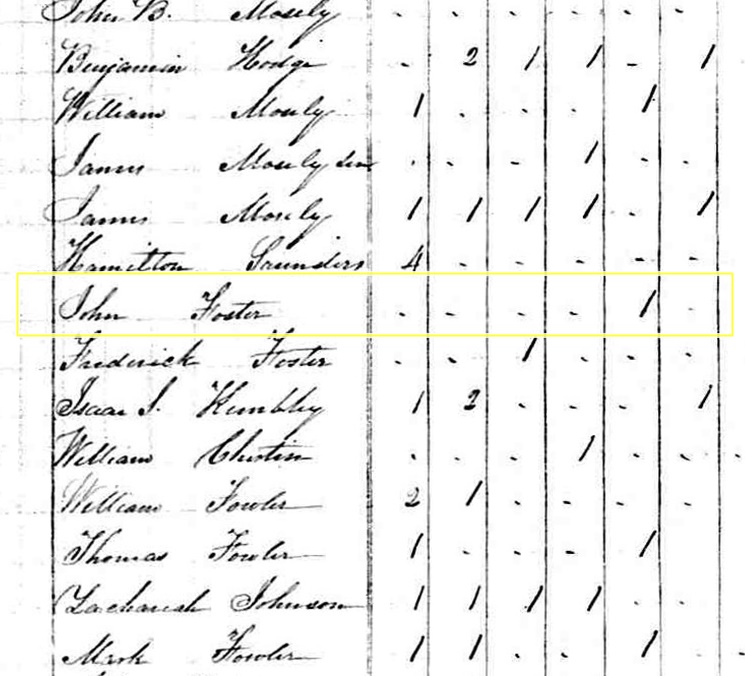 John B. Mosely . . . . . .
Benjamin Hodge . 2 1 1 - 1
William Mosely 1 . . . 1 .
James Mosely Sen . - - 1 - -
James Mosely 1 1 1 1 . 1
Hamilton Saunders 4 - - - - -
John Foster . . . . 1 .
Frederick Foster . . 1 . . .
Isaac J. Kimbley 1 2 - - - 1
William . . . 1 . .
William Fowler 2 1 . - - .
Thomas Fowler 1 . . - 1 .
Zachariah Johnson 1 1 1 1 . .
Mark Fowler 1 1 . . 1 .